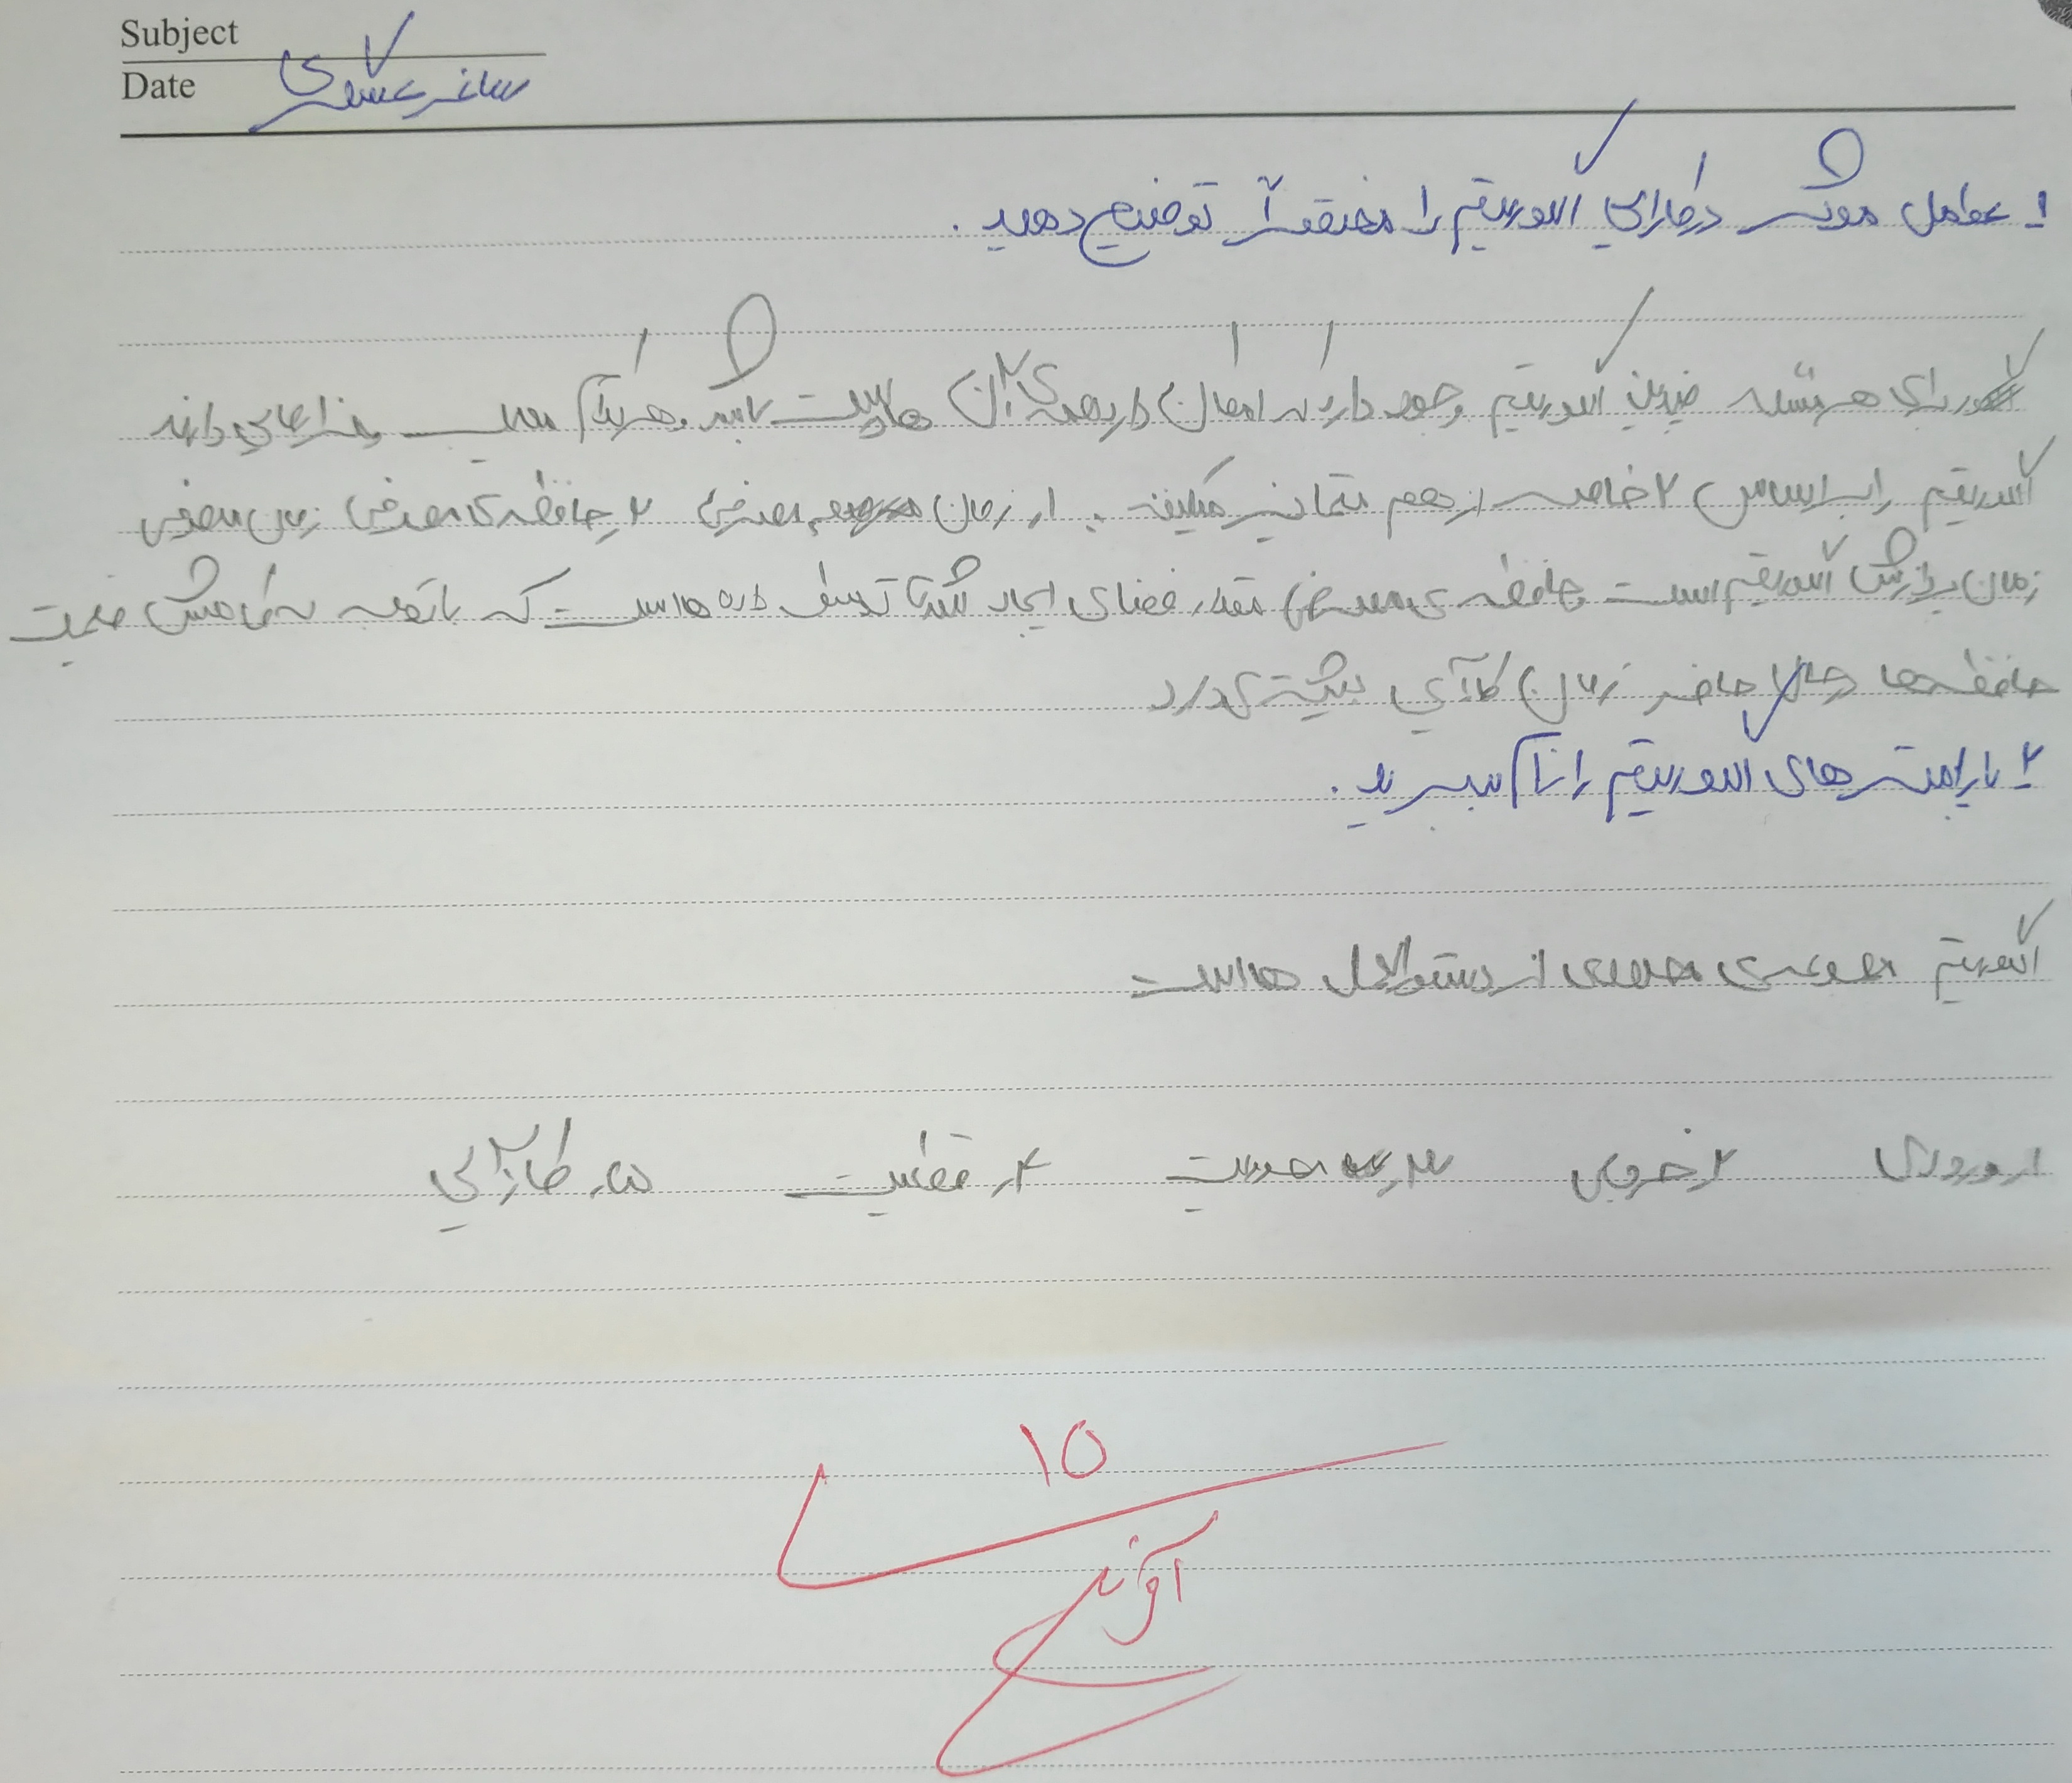 Subject
Date ساغر عسگری
۱_ عوامل موثر در کارایی الگوریتم را مختصراً توضیح دهید.
برای هر مسئله چندین الگوریتم وجود دارد که امکان دارد همه‌ی آن‌ها درست باشد. هر کدام معایب و مزایایی دارند
الگوریتم را براساس ۲ خاصیت از هم متمایز میکنیم. ۱. زمان مصرفی ۲. حافظه‌ی مصرفی زمان مصرفی
زمان پردازش الگوریتم است حافظه‌ی مصرفی مقدار فضای ایجاد شده توسط داده ها است که با توجه به کاهش قیمت
حافظه‌ها در حال حاضر زمان کارآیی بیشتری دارد
۲_ پارامترهای الگوریتم را نام ببرید.
الگوریتم مجموعه‌ی محدودی از دستورالعمل ها است
۱. ورودی ۲. خروجی ۳. محدودیت ۴. قطعیت ۵. کارایی
۱۵
آفرین